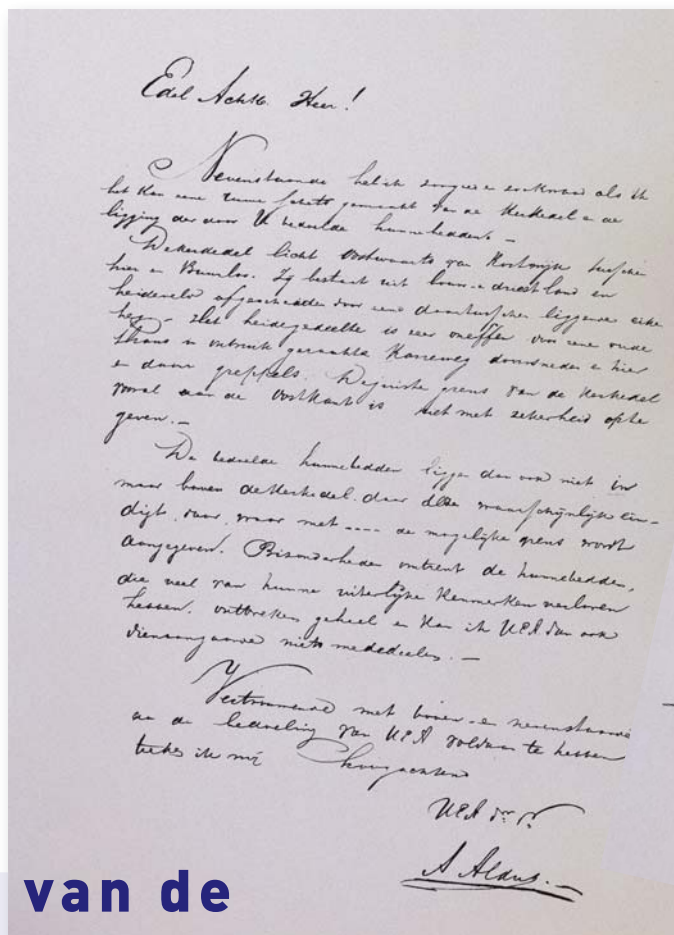 Edel Achtb. Heer!
Nevenstaande heb ik zoo goed en zoo kwaad als ik
het kan eene ruwe schets gemaakt van de Kerkedel en de
ligging der door U bedoelde hunnebedden. —
De Kerkedel ligt Oostwaarts van Kostvlies tusschen
hier en Buinerloo. Zij bestaat uit bouw- en driest land en
heideveld afgescheiden door eene daartusschen liggende eiken
heg. — Het heidegedeelte is zeer oneffen door eene oude
thans in onbruik geraakte Karreweg doorsneden en hier
en daar greppels. De juiste grens van de Kerkedel
vooral aan de Oostkant is niet met zekerheid op te
geven. —
De bedoelde hunnebedden liggen dan ook niet in
maar boven de Kerkedel, daar deze waarschijnlijk ein-
digt, daar, waar met ---- de mogelijke grens wordt
aangegeven. Bizonderheden omtrent de hunnebedden,
die veel van hunne uiterlijke Kenmerken verloren
hebben, ontbreken geheel en Kan ik UEA dan ook
dienaangaande niets mededeelen. —
Vertrouwende met boven- en nevenstaande
aan de bedoeling van UEA voldaan te hebben
teeken ik mij Hoogachtend
UEA dr. dr.
A Aldus. —
van de